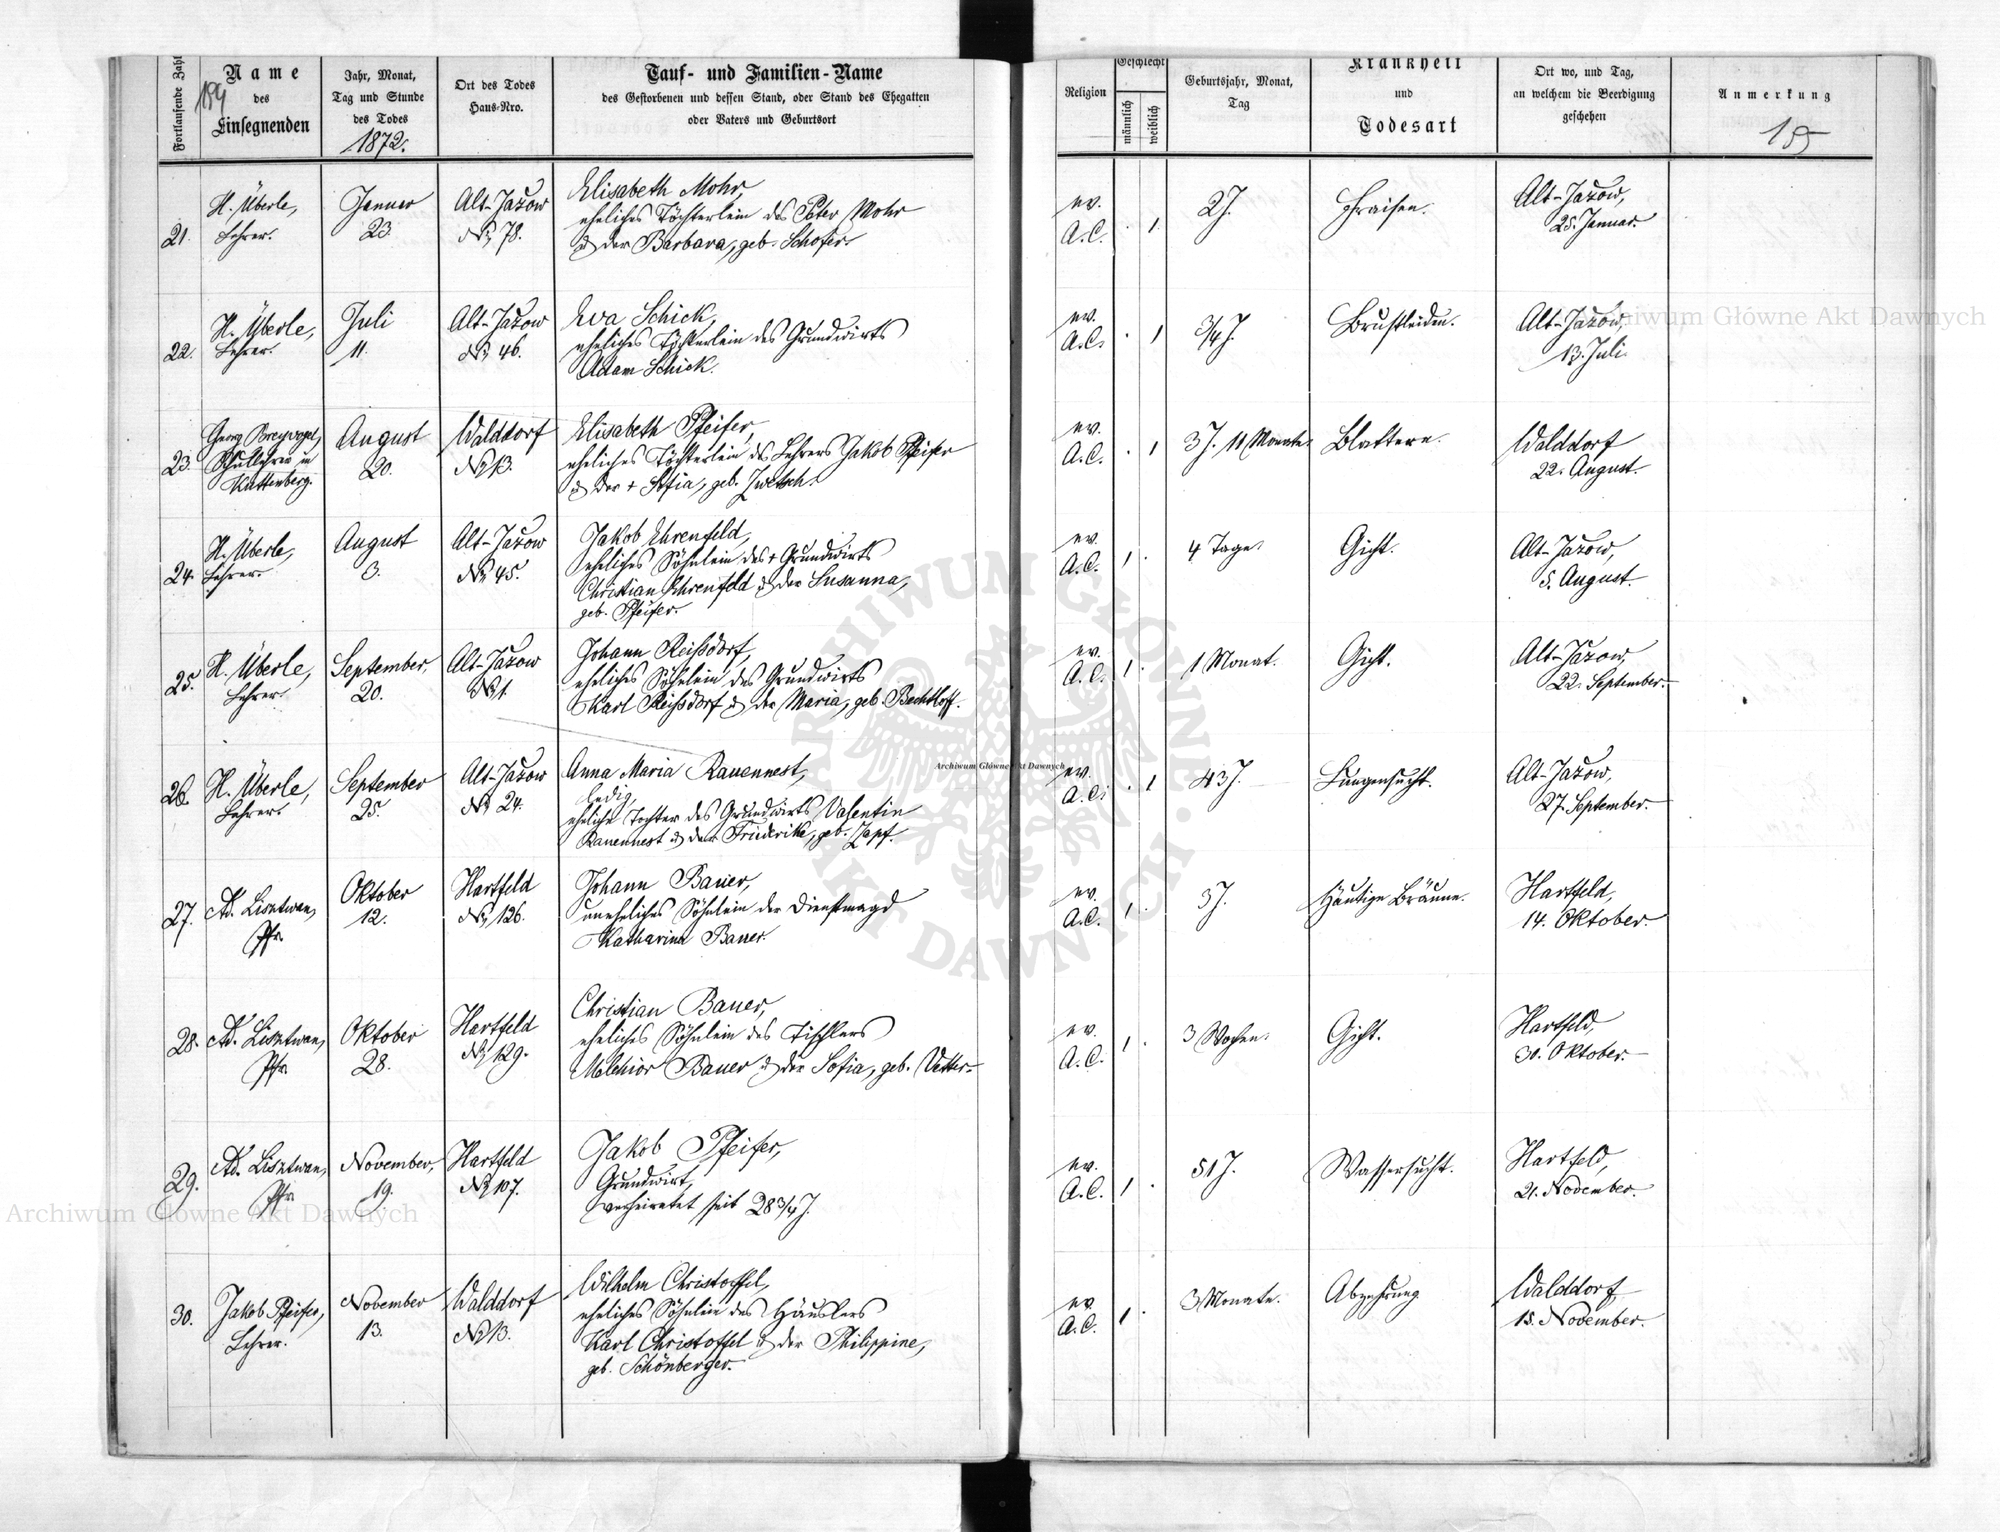 Fortlaufende Zahl
189
Name
des
Einsegnenden
Jahr, Monat,
Tag und Stunde
des Todes
1872.
Ort des Todes
Haus-Nro.
Tauf- und Familien-Name
des Gestorbenen und dessen Stand, oder Stand des Ehegatten
oder Vaters und Geburtsort
Religion
Geschlecht
männlich
weiblich
Geburtsjahr, Monat,
Tag
Krankheit
und
Todesart
Ort wo, und Tag,
an welchem die Beerdigung
geschehen
Anmerkung
21.
H. Überle,
Lehrer.
Januar
23.
Alt-Jazow
No 78.
Elisabeth Mohr,
eheliches Töchterlein des Peter Mohr
& der Barbara, geb. Schofer.
ev.
A.C.
· 1
2J.
Fraisen.
Alt-Jazow,
25. Januar.
22.
H. Überle,
Lehrer.
Juli
11.
Alt-Jazow
No 46.
Eva Schick,
eheliches Töchterlein des Grundwirts
Adam Schick.
ev.
A.C.
· 1
3/4 J.
Brustleiden.
Alt-Jazow,
13. Juli
23.
Georg Breyvogel,
Schullehrer in
Kuttenberg.
August
20.
Walddorf
No 13.
Elisabeth Pfeifer,
eheliches Töchterlein des Lehrers Jakob Pfeifer
& der + Sofia, geb. Zwetsch.
ev.
A.C.
· 1
3J. 11 Monate.
Blattern.
Walddorf
22. August.
24.
H. Überle,
Lehrer.
August
3.
Alt-Jazow
No 45.
Jakob Ehrenfeld,
eheliches Söhnlein des + Grundwirts
Christian Ehrenfeld & der Susanna,
geb. Pfeifer.
ev.
A.C.
1 ·
4 Tage.
Gicht.
Alt-Jazow,
5. August.
25.
H. Überle,
Lehrer.
September,
20.
Alt-Jazow
No 1.
Johann Reißdorf,
eheliches Söhnlein des Grundwirts
Karl Reißdorf & der Maria, geb. Bachtloff.
ev.
A.C.
1 ·
1 Monat.
Gicht.
Alt-Jazow,
22. September.
26.
H. Überle,
Lehrer.
September
25.
Alt-Jazow
No 24.
Anna Maria Rauennest,
ledig,
eheliche Tochter des Grundwirts Valentin
Rauennest & der Friederike, geb. Zapf.
ev.
A.C.
· 1
43J.
Lungensucht.
Alt-Jazow,
27. September.
27.
Ad. Lisztwan,
Pfr.
Oktober
12.
Hartfeld
No 126.
Johann Bauer,
uneheliches Söhnlein der Dienstmagd
Katharina Bauer.
ev.
A.C.
1 ·
3J.
Häutige Bräune.
Hartfeld,
14. Oktober.
28.
Ad. Lisztwan,
Pfr.
Oktober
28.
Hartfeld
No 129.
Christian Bauer,
eheliches Söhnlein des Tischlers
Melchior Bauer & der Sofia, geb. Vetter.
ev.
A.C.
1 ·
3 Wochen.
Gicht.
Hartfeld,
30. Oktober.
29.
Ad. Lisztwan,
Pfr
November,
19.
Hartfeld
No 107.
Jakob Pfeifer,
Grundwirt,
verheiratet seit 28 3/4 J.
ev.
A.C.
1 ·
51J.
Wassersucht.
Hartfeld,
21. November.
30.
Jakob Pfeifer,
Lehrer.
November
13.
Walddorf
No 13.
Wilhelm Christoffel,
eheliches Söhnlein des Häuslers
Karl Christoffel & der Philippine,
geb. Schönberger.
ev.
A.C.
1 ·
3 Monate.
Abzehrung
Walddorf
15. November.
Archiwum Główne Akt Dawnych
Archiwum Główne Akt Dawnych
Archiwum Główne Akt Dawnych
ARCHIWUM GŁÓWNE · AKT DAWNYCH ·